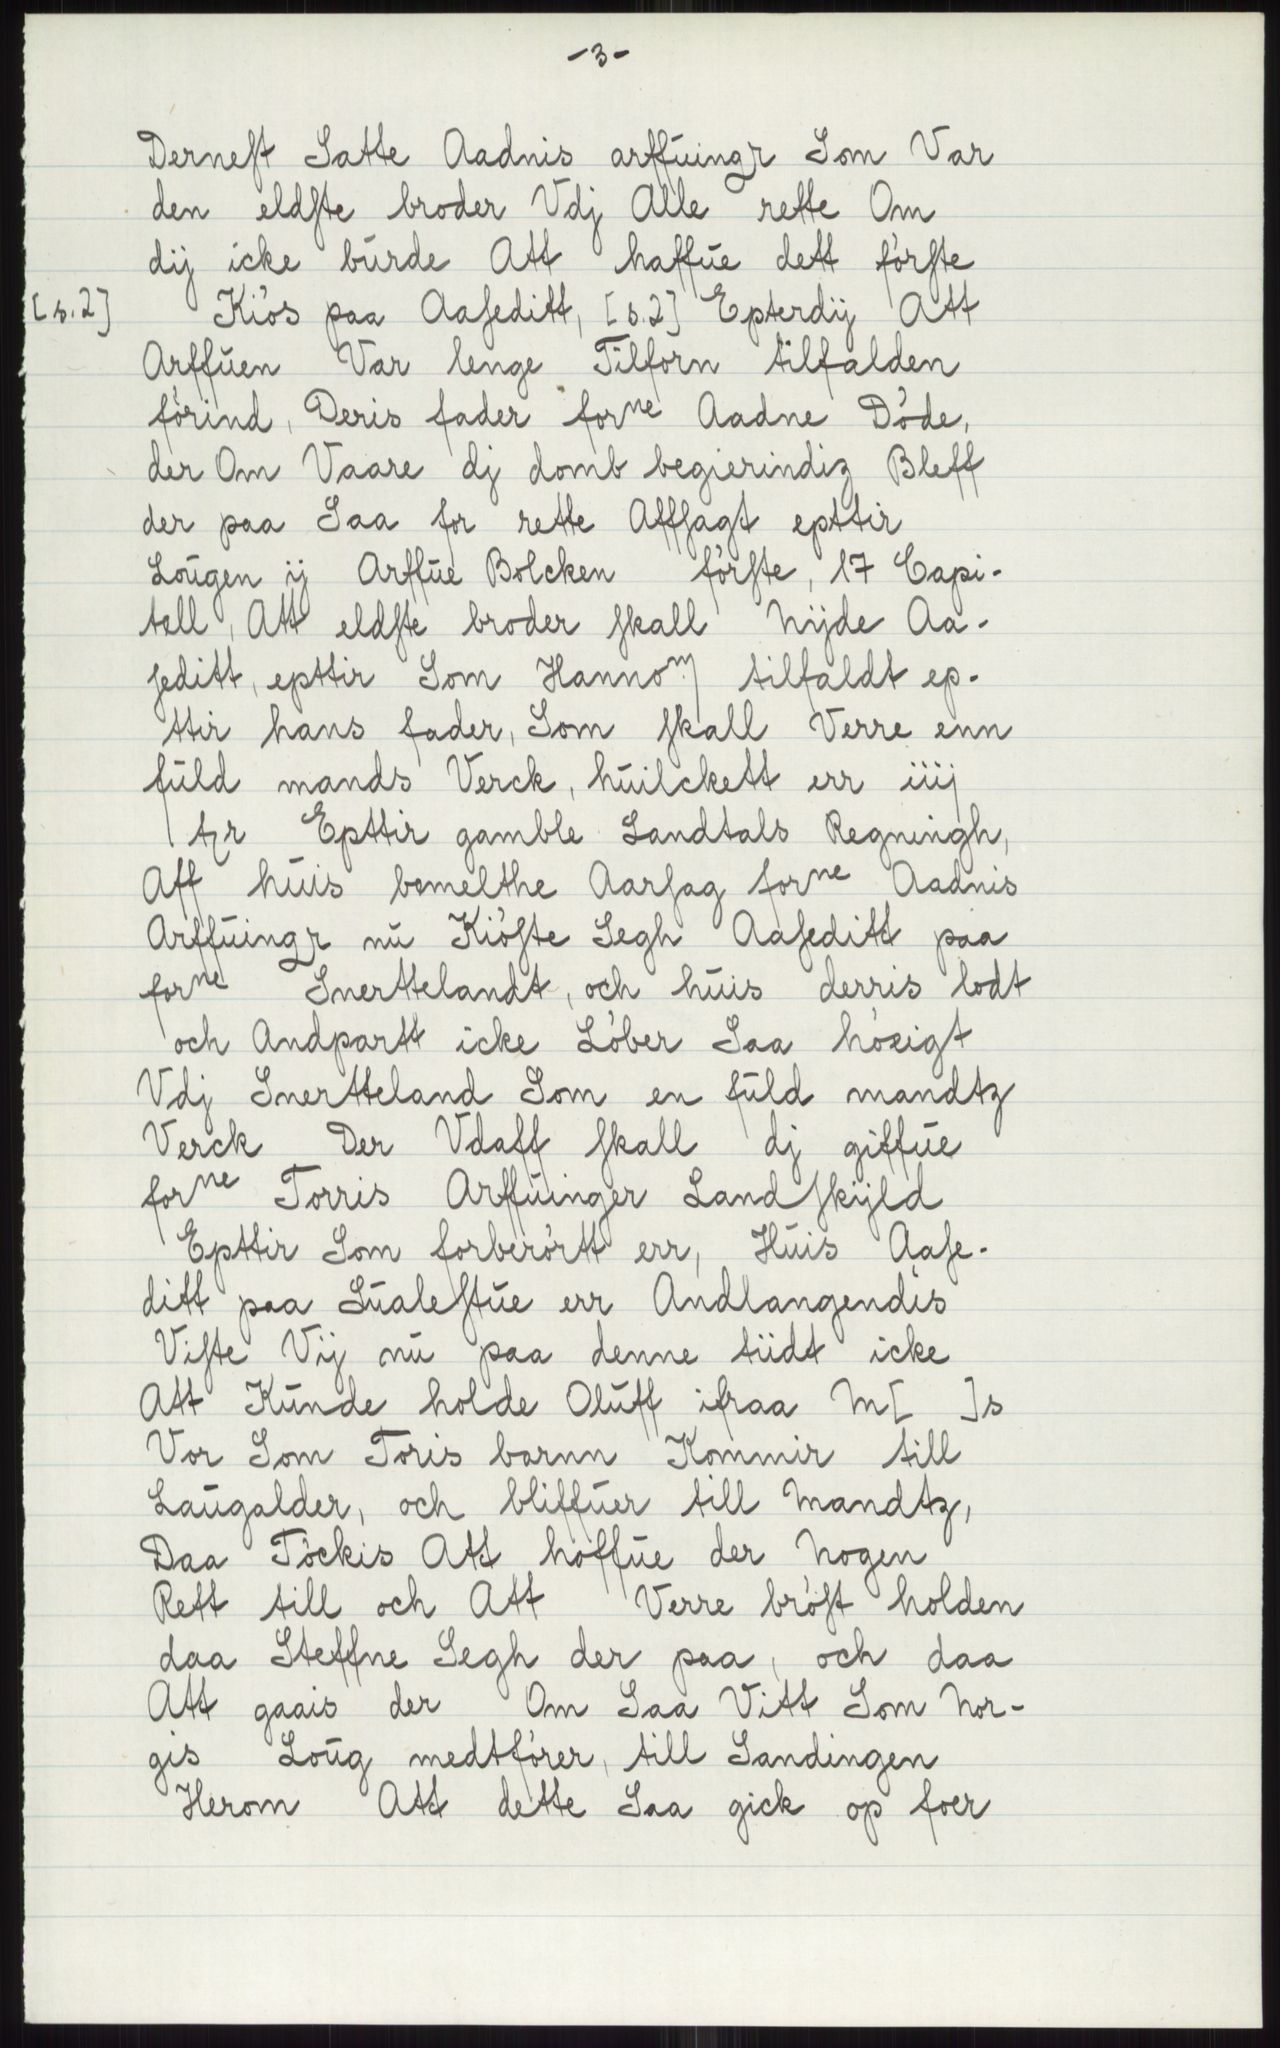 -3-
Dernest Satte Aadnis arffuingr Som Var
den eldste broder Vdj Alle rette Om
dij icke burde Att haffue dett förste
[s.2] Kiös paa Aaseditt, [s.2] Epterdij Att
Arffuen Var lenge Tilforn tilfalden
förind, Deris fader forne Aadne Döde,
der Om Vaare dj domb begierindiz Bleff
der paa Saa for rette Affsagt epttir
Lougen ij Arffue Bolcken förste, 17 Capi-
tell, Att eldste broder skall Nijde Aa-
seditt, epttir Som Hannom tilfaldt ep-
ttir hans fader, Som skall Verre enn
fuld mands Verck, huilckett err iiij
Epttir gamble Landtals Regningh,
Aff huis bemelthe Aarsag forne Aadnis
Arffuingr nu Kiöste Segh Aaseditt paa
forne Snerttelandt, och huis derris lodt
och Andpartt icke Löber Saa höxigt
Vdj Snertteland Som en fuld mandtz
Verck Der Vdaff skall dj giffue
forne Torris Arffuinger Landskijld
Epttir Som forberörtt err, Huis Aase-
ditt paa Sualestue err Andlangendis
Viste Vij nu paa denne tiidt icke
Att Kunde holde Oluff ifraa M[ ]s
Vor Som Toris barnn Kommir till
Laugalder, och bliffuer till Mandtz,
Daa Töckis Att haffue der Nogen
Rett till och Att Verre bröst holden
daa Steffne Segh der paa, och daa
Att gaais der Om Saa Vitt Som Nor-
gis Loug medtförer, till Sandingen
Herom Att dette Saa gick op foer